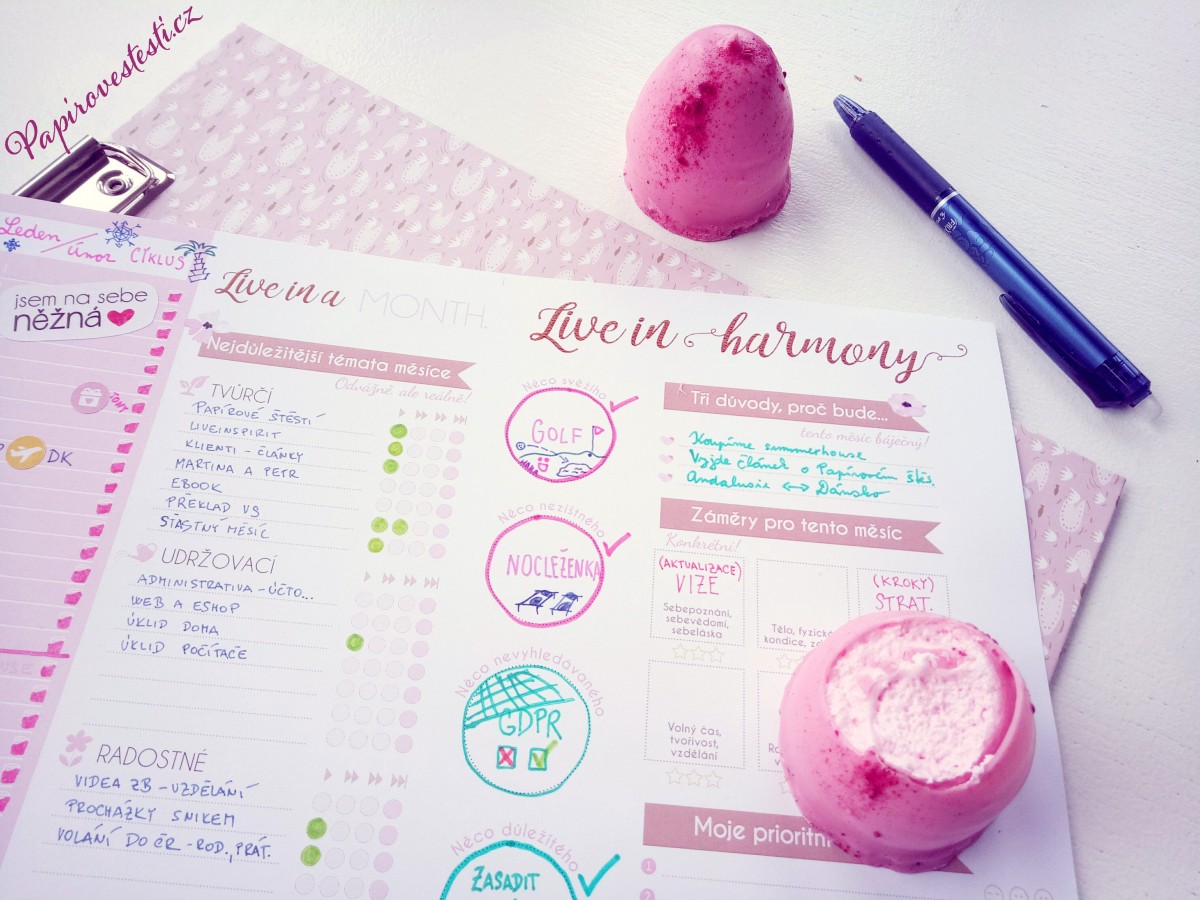 Papírovestesti.cz
Leden /
únor CÍKLUS
jsem na sebe
něžná
DK
Live in a MONTH.
Nejdůležitější témata měsíce
Odvážně, ale reálně!
TVŮRČÍ
PAPÍROVÉ ŠTĚSTÍ
LIVEINSPIRIT
KLIENTI - ČLÁNKY
MARTINA A PETR
EBOOK
PŘEKLAD VS
ŠŤASTNÝ MĚSÍC
UDRŽOVACÍ
ADMINISTRATIVA - ÚČTO...
WEB A ESHOP
ÚKLID DOMA
ÚKLID POČÍTAČE
RADOSTNÉ
VIDEA ZB - VZDĚLÁNÍ
PROCHÁZKY S NIKEM
VOLÁNÍ DO ČR - ROD., PŘÁT.
Live in harmony
Něco svěžího
GOLF
Něco nezištného
NOCLEŽENKA
Něco nevyhledávaného
GDPR
Něco důležitého
ZASADIT
Tři důvody, proč bude...
tento měsíc báječný!
Koupíme summerhouse
Vyjde článek o Papírovém štěs.
Andalusie <-> Dánsko
Záměry pro tento měsíc
Konkrétní!
(AKTUALIZACE)
VIZE
Sebepoznání,
sebevědomí,
sebeláska
Tělo, fyzická
kondice,
(KROKY)
STRAT.
Volný čas,
tvořivost,
vzdělání
Moje prioritní
1
2